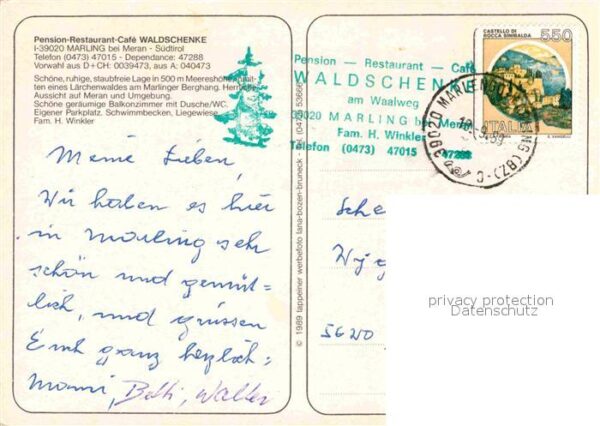 Pension-Restaurant-Café WALDSCHENKE
I-39020 MARLING bei Meran - Südtirol
Telefon (0473) 47015 - Dependance: 47288
Vorwahl aus D+CH: 0039473, aus A: 040473
Schöne, ruhige, staubfreie Lage in 500 m Meereshöhe,
ten eines Lärchenwaldes am Marlinger Berghang.
Aussicht auf Meran und Umgebung.
Schöne geräumige Balkonzimmer mit Dusche/WC.
Eigener Parkplatz. Schwimmbecken, Liegewiese.
Fam. H. Winkler
Meine Lieben,
Wir haben es hier
in Marling sehr
schön und gemüt=
lich, und grüssen
Euch ganz herzlich:
Mami, Betti, Walter
© 1989 tappeiner werbefoto lana-bozen-bruneck - tel. (0473) 53666
Pension — Restaurant — Café
WALDSCHENKE
am Waalweg
39020 MARLING bei Meran
Fam. H. Winkler
Telefon (0473) 47015 47288
CASTELLO DI
ROCCA SINIBALDA
550
ITALIA
39020
5620
privacy protection
Datenschutz